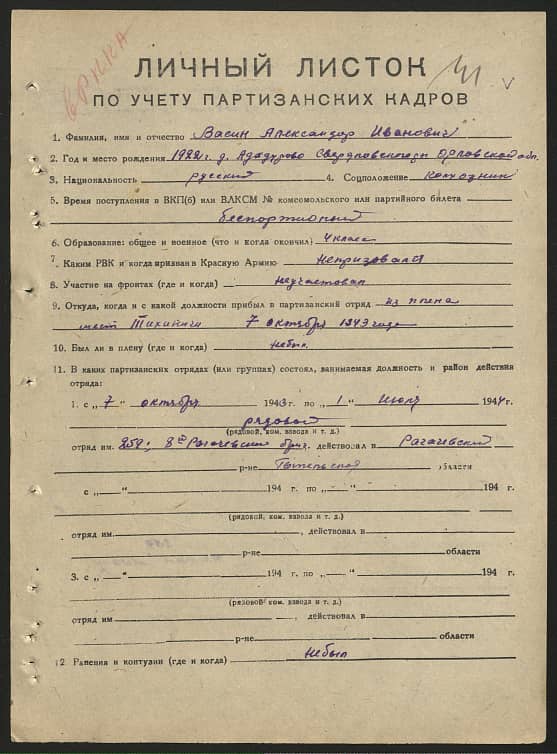 в РККА
ЛИЧНЫЙ ЛИСТОК
ПО УЧЕТУ ПАРТИЗАНСКИХ КАДРОВ
1. Фамилия, имя и отчество Васин Александр Иванович
2. Год и место рождения 1922 г. д. Свердловского р. Орловской обл.
3. Национальность русский 4. Соцположение колхозник
5. Время поступления в ВКП(б) или ВЛКСМ № комсомольского или партийного билета
беспартийный
6. Образование: общее и военное (что и когда окончил) 4 класса
7. Каким РВК и когда призван в Красную Армию Непризовался
8. Участие на фронтах (где и когда) Неучаствовал
9. Откуда, когда и с какой должности прибыл в партизанский отряд из плена
мест Тихиничи 7 октября 1943 года
10. Был ли в плену (где и когда) небыл
11. В каких партизанских отрядах (или группах) состоял, занимаемая должность и район действия
отряда:
1. с „ 7 " октября 1943 г. по „ 1 " Июля 1944 г.
рядовой
(рядовой, ком. взвода и т. д.)
отряд им. 252; 8й Рагачевский бриг. действовал в Рагачевский
р-не Гомельской области
с „ " 194 г. по „ " 194 г.
(рядовой, ком. взвода и т. д.)
отряд им. , действовал в
р-не области
3. с „ " 194 г. по „ " 194 г.
(рядовой, ком. взвода и т. д.)
отряд им , действовал в
р-не области
12. Ранения и контузии (где и когда) небыл